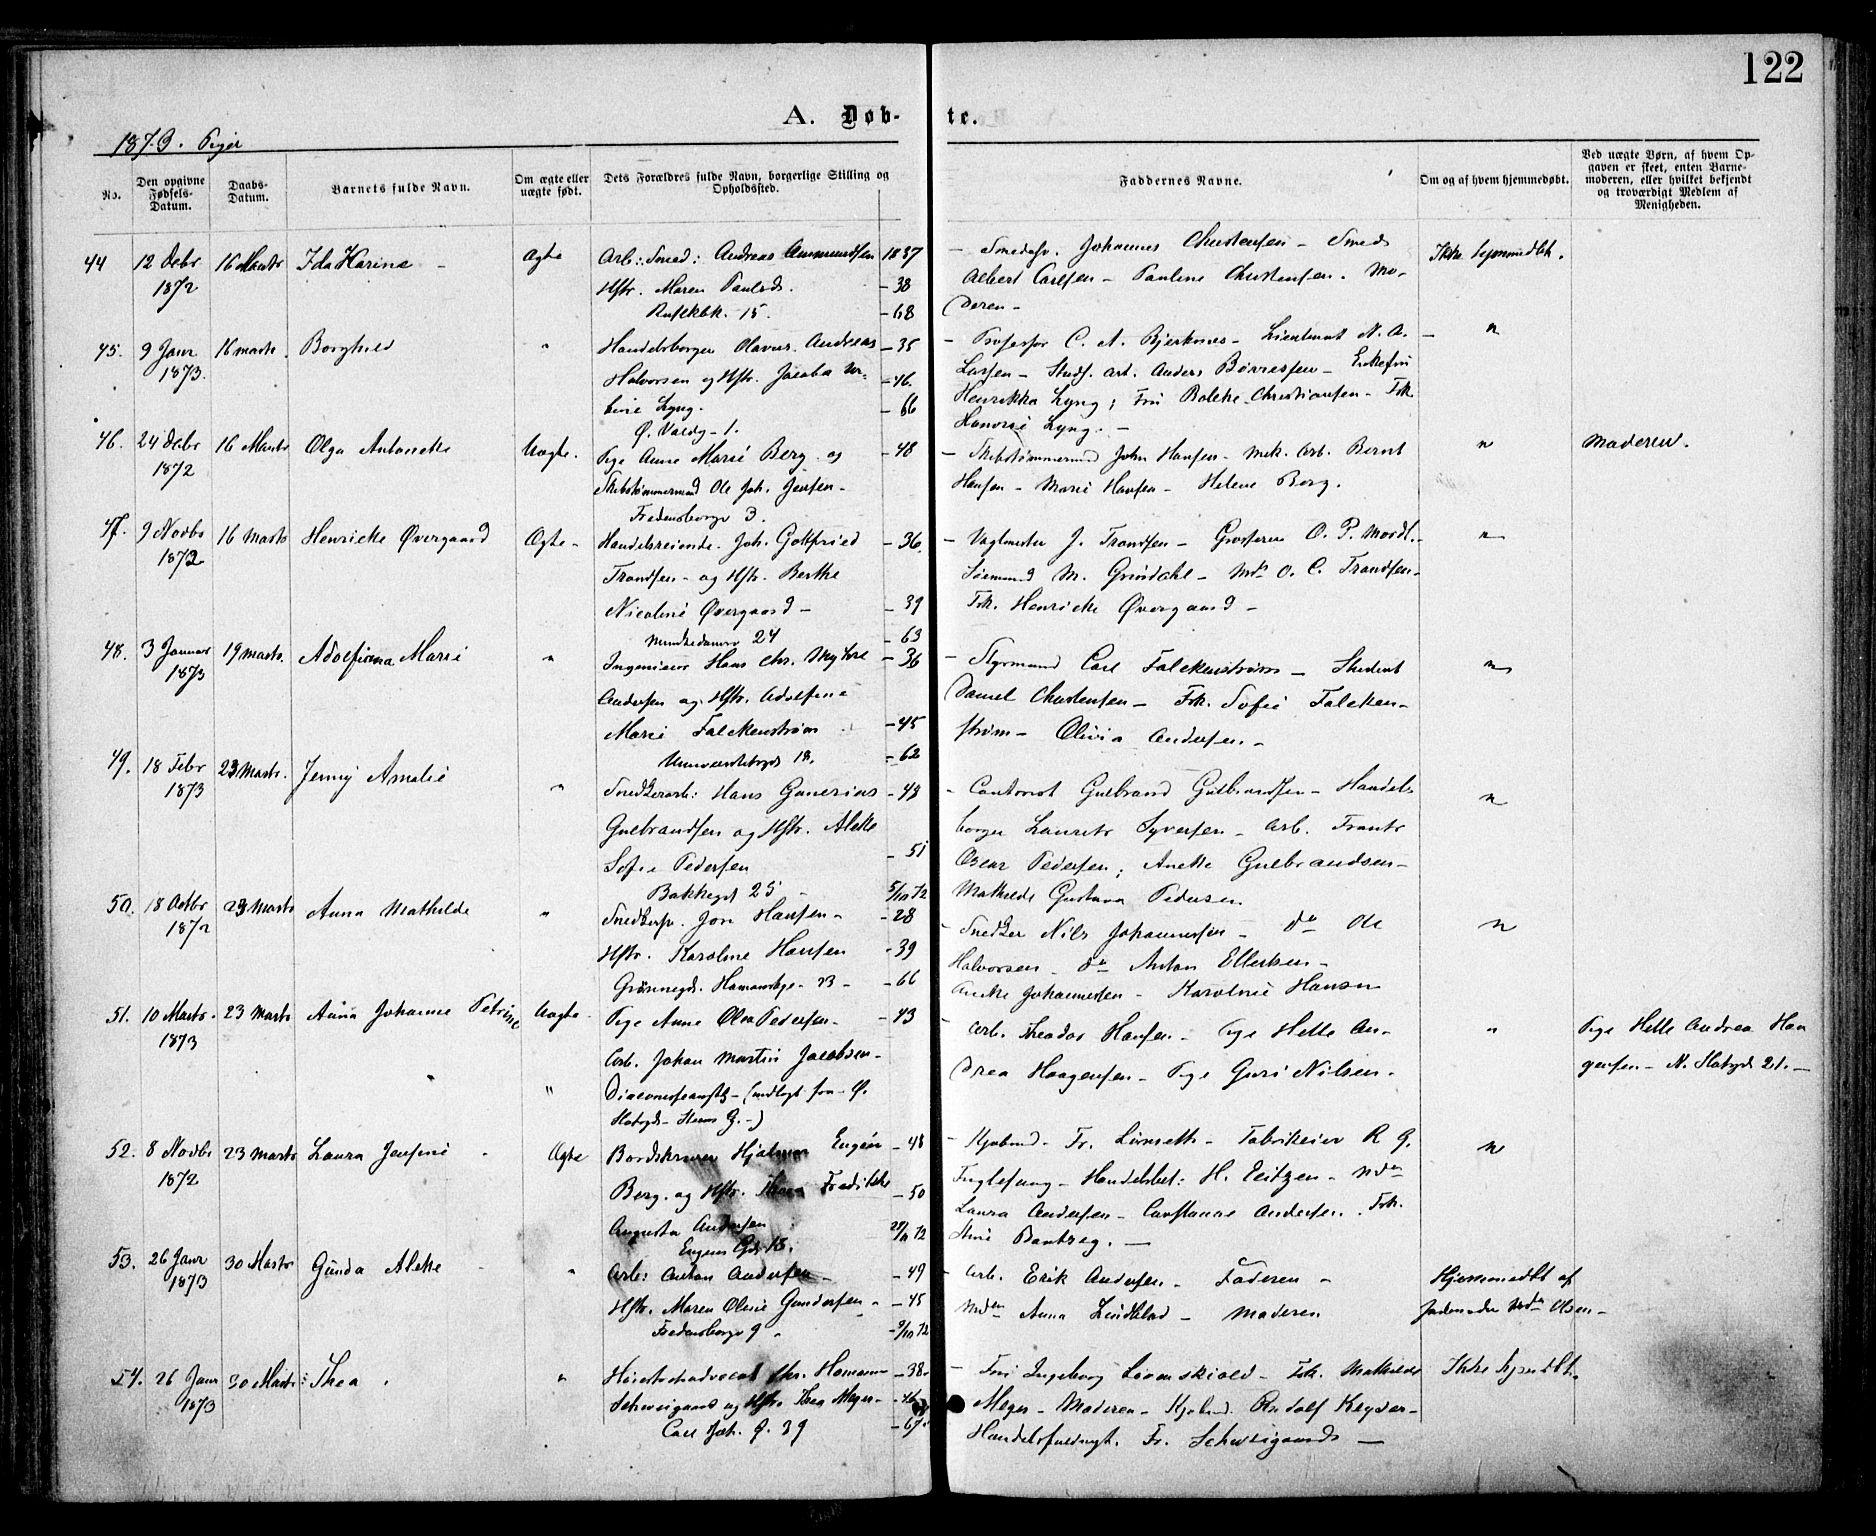 122
A. Døb-
te.
1873. Piger
No.
Den opgivne Fødsels-Datum.
Daabs-Datum.
Barnets fulde Navn.
Om ægte eller uægte født.
Dets Forældres fulde Navn, borgerlige Stilling og Opholdssted.
Faddernes Navne.
Om og af hvem hjemmedøbt.
Ved uægte Børn, af hvem Op-
gaven er skeet, enten Barne-
moderen, eller hvilket bekjendt
og troværdigt Medlem af
Menigheden.
44 12 Debr 16 Marts Ida Karine Ægte Arb: Smed: Andreas Ammundsen 1837
1872 Hstr. Maren Paulsd. - 38
15. - 68
- Johannes Christensen - Smed
Albert Carlsen - Pauline Christensen. Mo-
deren -
Ikke
45. 9 Janr 16 marts. Borghild " Handelsborger Olavus Andreas - 35
1873. Halvorsen og Hstr. Jacoba - 46.
Lyng. - 66
Ø. 1.
- Professor C. A. Bjerknes - Lieutenant N. A. -
Larsen - Anders Børresen - Enkefru
Henrikka Lyng; Fru Christiansen - Frk.
Lyng. -
"
46. 24 Debr 16 Marts Olga Antonette Uægte. Pige Anne Marie Berg og - 48
1872 Skibstømmermand Ole Joh. Jensen -
Fredensborgv 3.
- Skibstømmermand John Hansen - mek. Arb. Bernt
Hansen - Marie Hansen - Helene Berg.
"
Moderen.
47. 9 Novbr 16 marts Henrikke Øvergaard Ægte - Handelsreisende Joh. Gottfried - 36.
1872 Trondsen - og Hstr. Berthe
Nicoline Øvergaard - - 39
Munkedamsv 24 - 63
- J. Trondsen - O. P.
M. Grøndahl - O. C. Trondsen -
Frk. Henrikke Øvergaard -
"
48. 3 Januar 19 marts. Adolfine Marie " Ingenieur Hans Chr. - 36
1873 Andersen og Hstr. Adolfine
Marie Falckenstrøm - 45
Universitetsgd 18. - 62
- Styrmand Carl Falckenstrøm - Student
Daniel Christensen - Frk. Sofie Falcken-
strøm - Olivia Andersen -
"
49. 18 Febr 23 Marts. Jenny Amalie " Snedkerarb: Hans Gunerius - 48
1873 Gulbrandsen og Hstr. Alette
Sofie Pedersen - 51
Bakkegt 25 5/10 72
- Contorist Gulbrand Gulbrandsen - Handels
borger Laurits Syversen - Arb. Frants
Oscar Pedersen; Anette Gulbrandsen -
Mathilde Gustava Pedersen
"
50. 18 Octbr 23 Marts Anna Mathilde " Snedkersv. Jon Hansen - - 28
1872 Hstr. Karoline Hansen - 39
Grønnegd. 23 - - 66
- Snedker Nils Johannesen - do Ole
Halvorsen - do Anton Ellertsen -
Johannesen - Karoline Hansen
"
51. 10 Marts. 23 Marts Anna Johanne Petrine Uægte. Pige Anne Olea Pedersen - - 43
1873 Arb. Johan Martin Jacobsen -
"
- Arb. Theodor Hansen - Pige Helle An-
drea Haagensen - Pige Guri Nilsen -
"
Pige Helle Andrea Haa
gensen - N. Slotsgd 21. -
52. 8 Novbr 23 Marts Laura Josefine Ægte Bordskriver Hjalmar Eugen - 48
1872 Berg. og Hstr. Thea Fredrikke - 50
Augusta Andersen
Eugens Gd. 18.
- Kjøbmd - Fr. Linseth - Fabrikeier R G.
Fuglesang - H. Eitzen - Mdm
Laura Andersen - Constance Andersen. Frk.
-
"
53. 26 Janr 30 Marts Gunda Alette " Arb: Anton Andersen - - 49
1873 Hstr. Maren Oline Gundersen - - 45
Fredensborgv 9 - 9/10 72
- Arb. Erik Andersen - Faderen -
Mdm Anna Lindblad - Moderen
Hjemmedøbt af
Mdm Olsen -
54. 26 Janr 30 Marts Thea " Høiesteretsadvocat Chr. Homann - 38.
1873 Schweigaard og Hstr. Thea Meyer - - 46
Carl Joh. G. 39 - 67
- Fru Ingeborg Løvenskiold - Frk. Mathilde
Meyer - Moderen - Kjøbmd. Rudolf Keyser -
Handelsfuldmgt. Fr. Schweigaard -
Ikke